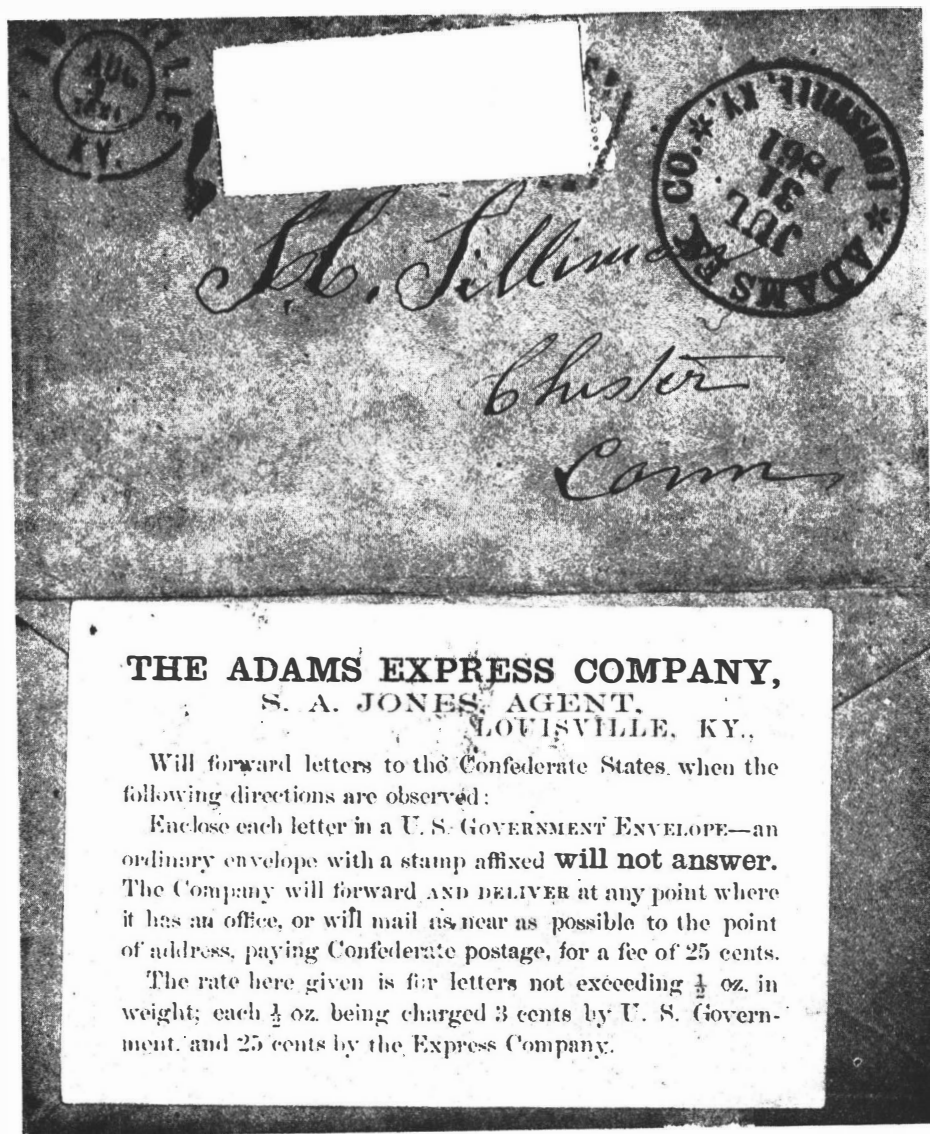 AUG
1
1861
KY.
ADAMS EX. CO. * LOUISVILLE, KY. *
JUL
31
1861
Silliman
Chester
Conn
THE ADAMS EXPRESS COMPANY,
S. A. JONES, AGENT,
LOUISVILLE, KY.,
Will forward letters to the Confederate States, when the
following directions are observed:
Enclose each letter in a U. S. GOVERNMENT ENVELOPE—an
ordinary envelope with a stamp affixed will not answer.
The Company will forward AND DELIVER at any point where
it has an office, or will mail as near as possible to the point
of address, paying Confederate postage, for a fee of 25 cents.
The rate here given is for letters not exceeding ½ oz. in
weight; each ½ oz. being charged 3 cents by U. S. Govern-
ment, and 25 cents by the Express Company.